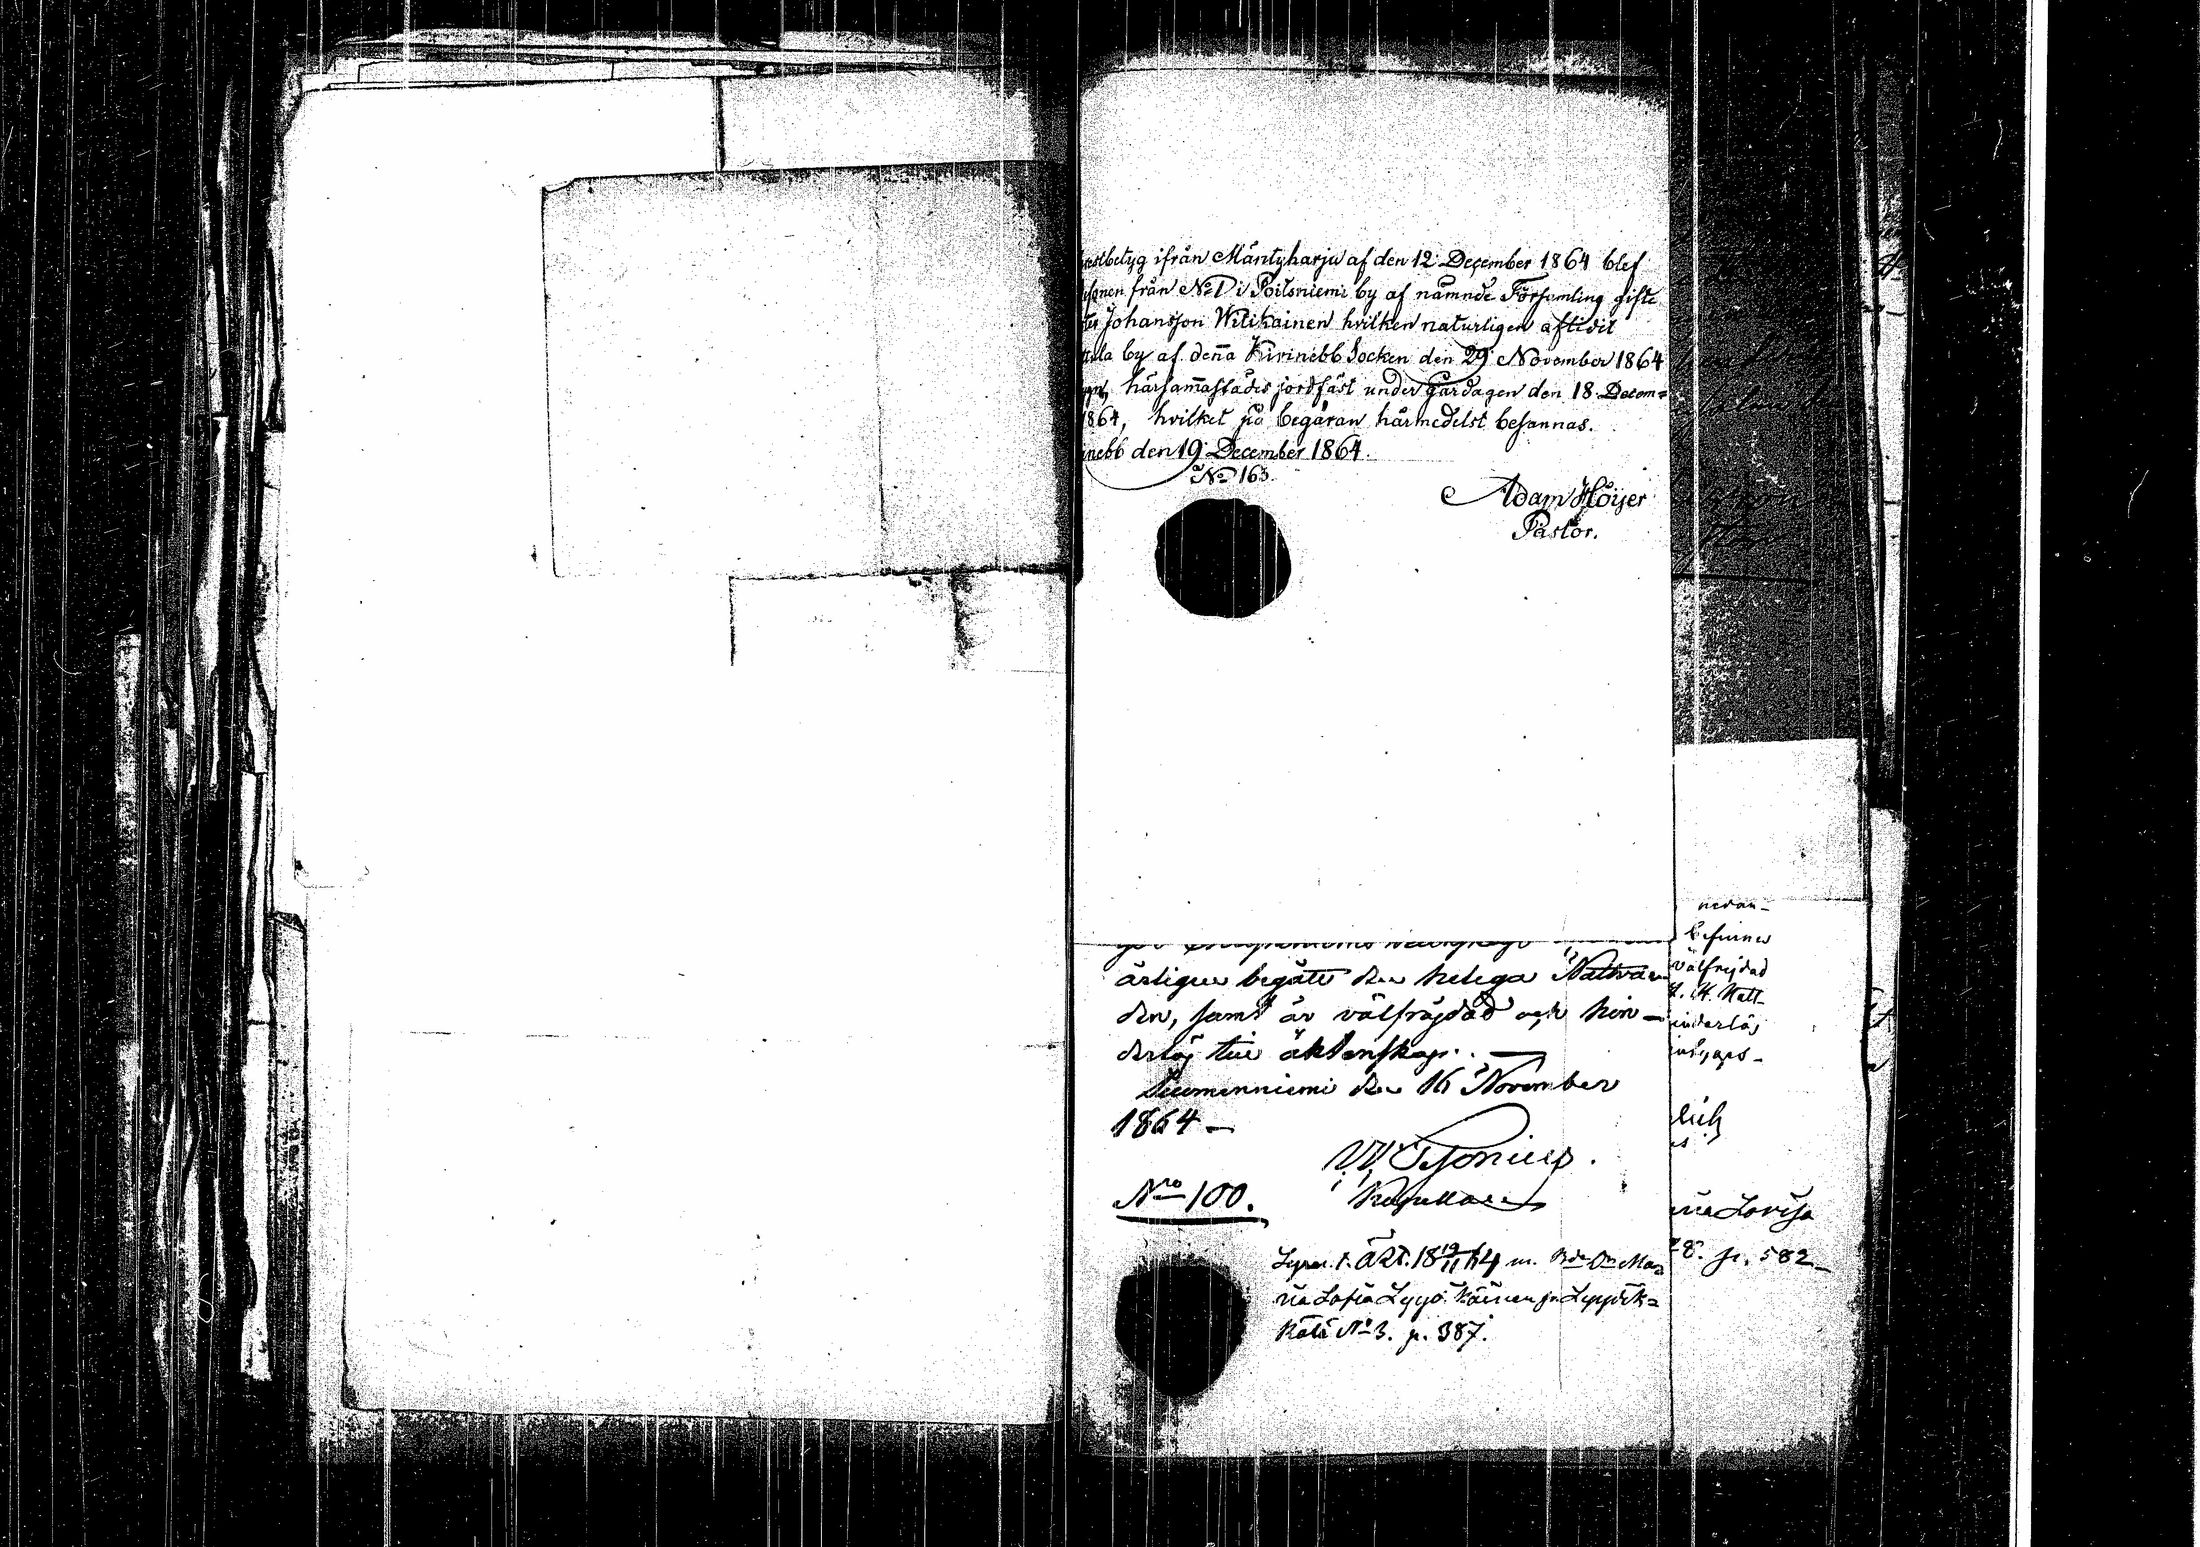 betyg ifrån Mäntyharju af den 12 December 1864 blef
från No 1 i Poitsniemi by af nämnde Församling gifte
Johansson Wilikainen hvilken naturligen aflidit
by af denna Kivinebb Socken den 29 November 1864
härsammastädes jordfäst under gårdagen den 18 Decem=
1864, hvilket på begäran härmedelst besannas.
nebb den 19 December 1864.
No 163.
Adam Höijer
Pastor.
årligen begått den helega Nattvar
den, samt är välfräjdad och hin-
derlös till äktenskap.
Suomenniemi den 16 November
1864 -
Kapellan
Nro 100.
Lyst. t. Äkt. m. Ma=
ria Sofia Leppäk=
No 3. p. 387.
nedan-
befinnes
välfrejdad
H. H. Natt-
inderlös
Lovisa
28. p. 582-